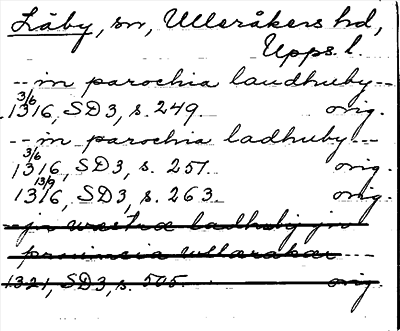 Låby, sn, Ulleråkers hd,
Upps. l.
-- in parochia laudhuby --
3/6
1316, SD3, s. 249. orig.
-- in parochia ladhuby --
3/6
1316, SD3, s. 251. orig.
13/9
1316, SD3, s. 263. orig.
-- jn westra ladhubj jn
prouincia ullarakar ---
1321, SD3, s. 505. orig.